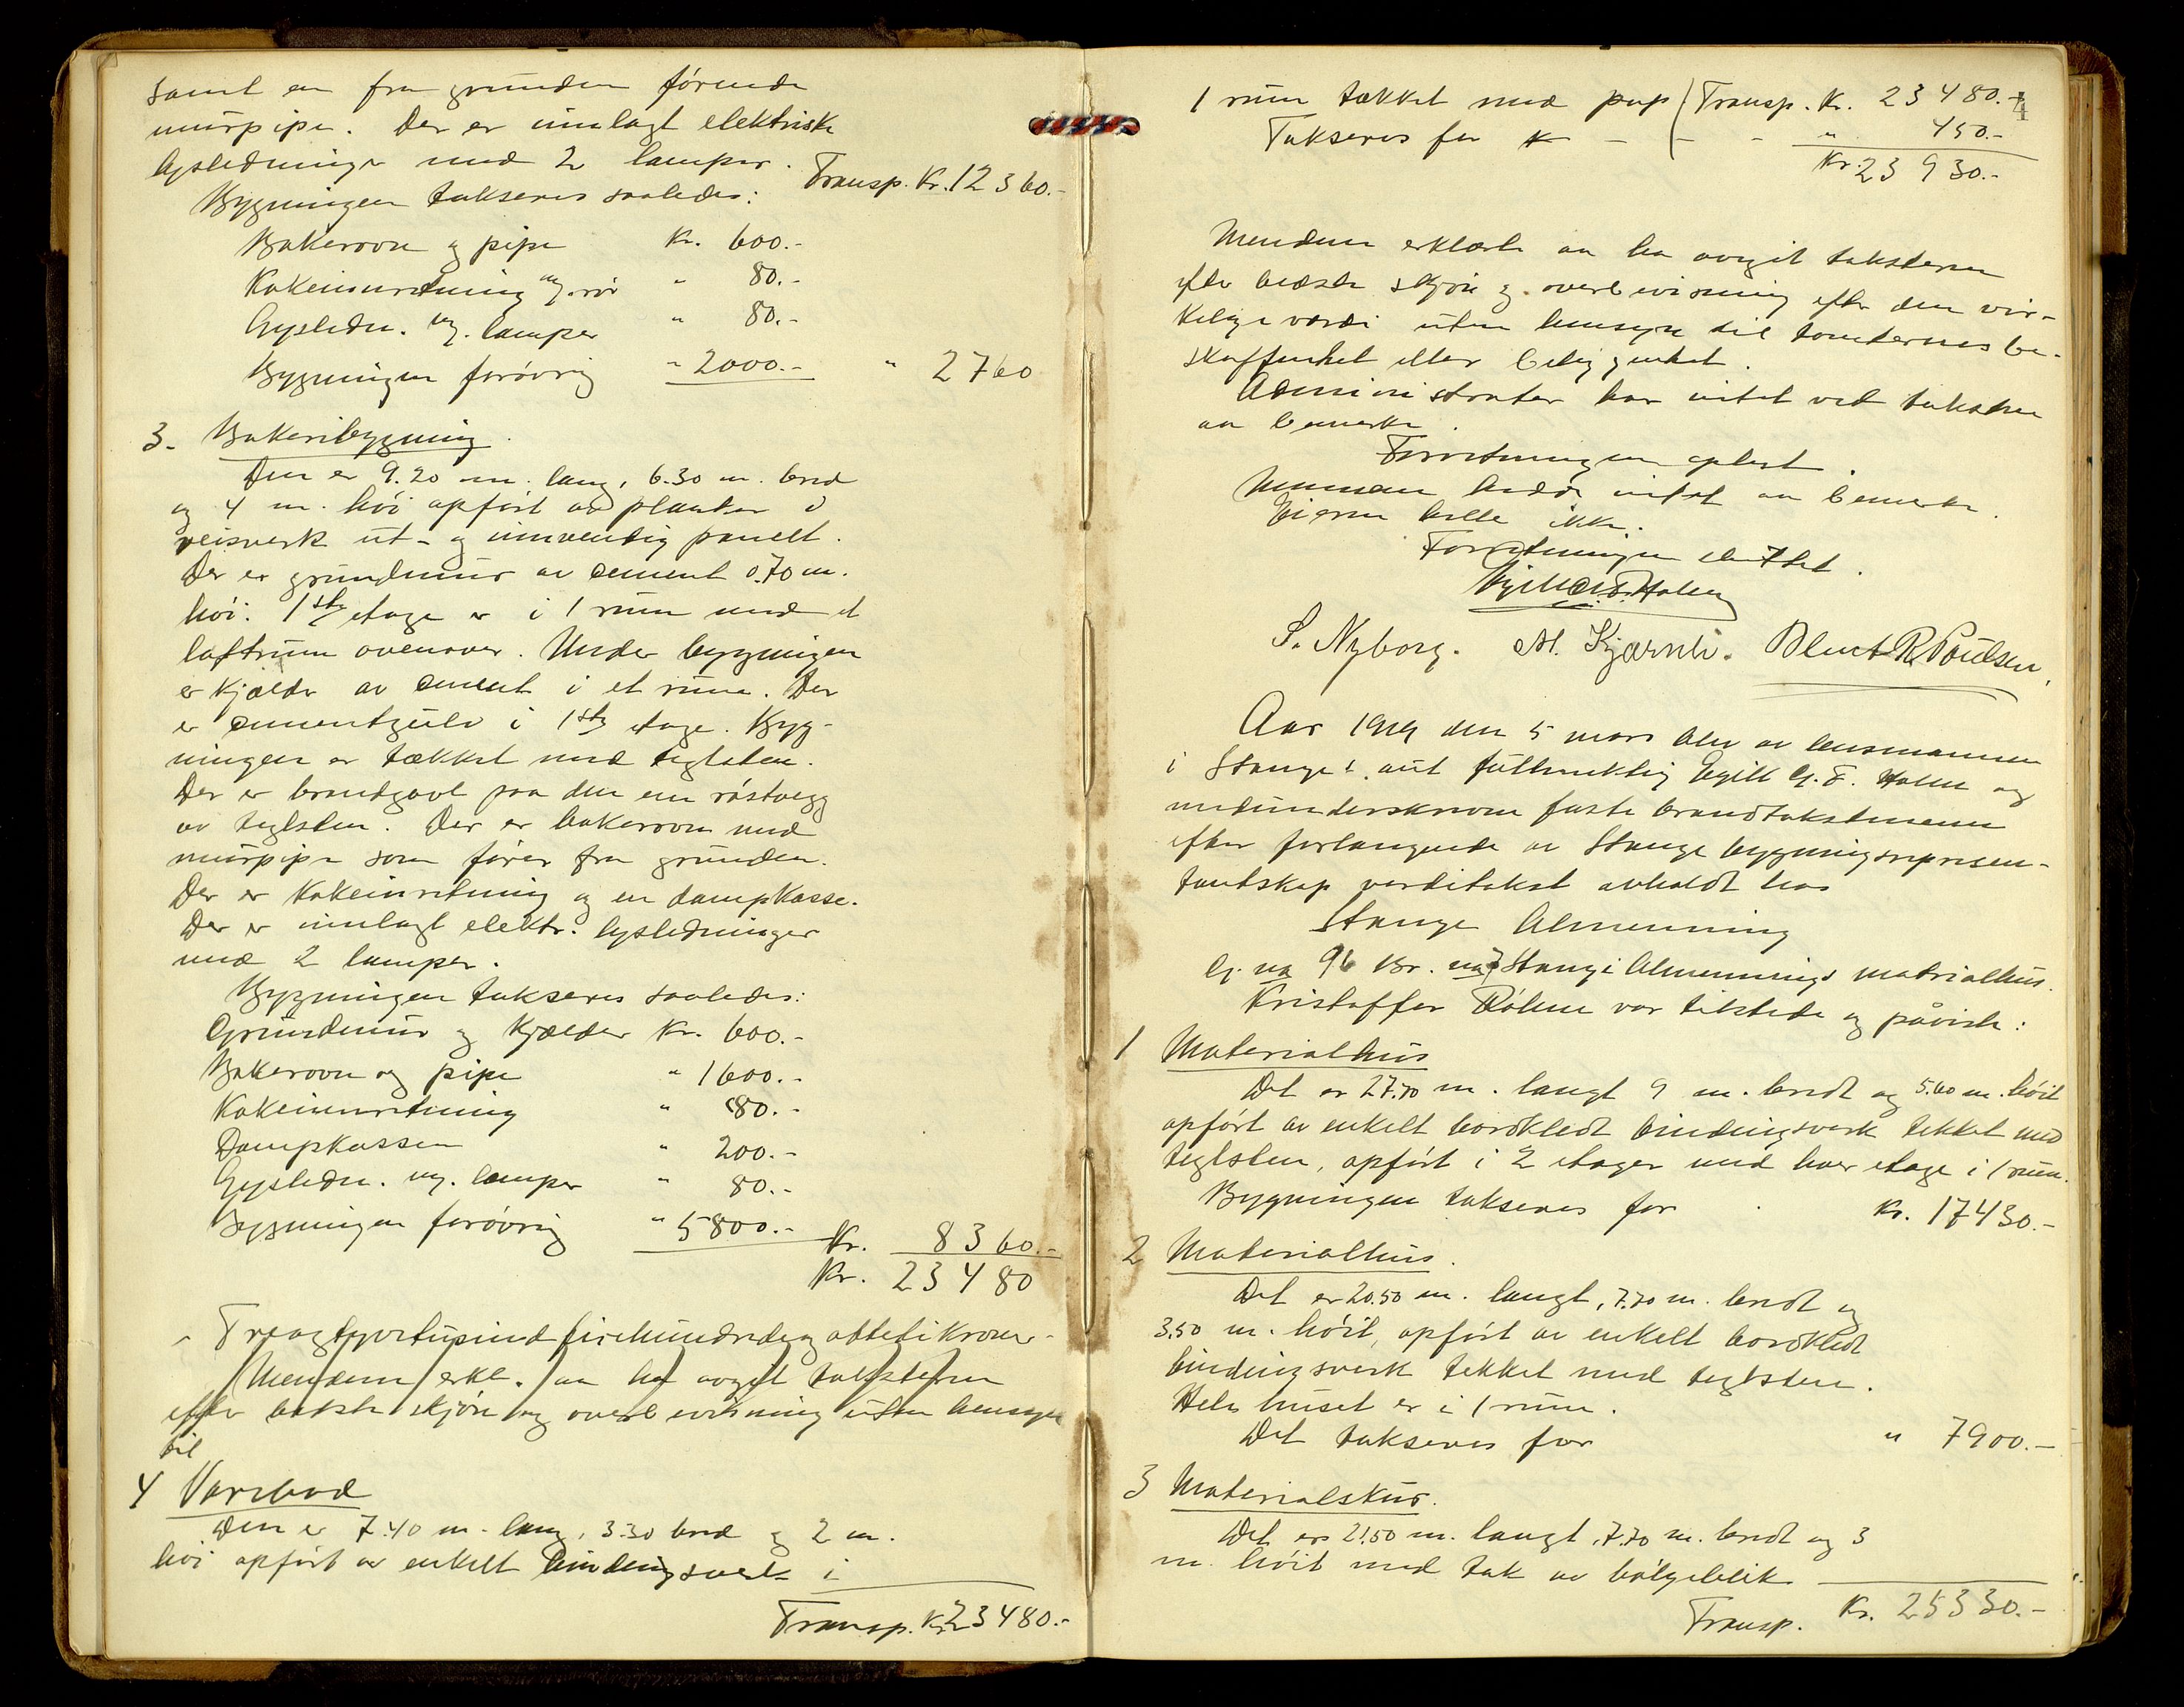 samt en fra grunden förende
murpipe. Der er innlagt elektriske
lysledninger med 2 lamper.
Transp. Kr. 12360.-
Bygningen takseres saaledes:
Bakerovn og pipe Kr. 600.-
Kokeinnretning og rör " 80.-
Lysledn. og lamper " 80.-
Bygningen forövrig " 2000.- " 2760
3. Bakeribygning.
Den er 9.20 m. lang, 6.30 m. bred
og 4 m. höi opfört av planker i
reisverk ut- og innvendig panelt.
Der er grundmur av cement 0.70 m.
höi. 1ste etage er i 1 rum med et
loftrum ovenover. Under bygningen
er kjælder av cement i et rum. Der
er cementgulv i 1ste etage. Byg-
ningen er tækket med teglsten.
Der er brandgavl paa den ene röstvegg
av teglsten. Der er bakerovn med
murpipe som förer fra grunden.
Der er kokeinretning og en dampkasse.
Der er innlagt elektr. lysledninger
med 2 lamper.
Bygningen takseres saaledes:
Grundmur og kjælder Kr. 600.-
Bakerovn og pipe " 1600.-
Kokeinnretning " 80.-
Dampkassen " 200.-
Lysledn. og lamper " 80.-
Bygningen forövrig " 5800.-
Kr. 8360.-
Kr. 23480
- Treogtyvetusind firehundredeogottetikroner -
Mendene erkl. aa ha avgit taksterne
efter bedste skjön og overbevisning uten hensyn
til
4 Varebod
Den er 7.40 m. lang, 3.30 bred og 2 m.
höi opfört av enkelt bindingsverk i
Transp. Kr. 23480.-
4
1 rum tækket med pap Transp. Kr. 23480.-
Takseres for - - - " 450.-
Kr. 23930.-
Mendene erklærte aa ha avgit taksterne
efter bedste skjön og overbevisning efter den vir-
kelige værdi uten hensyn til tomternes be-
skaffenhet eller beliggenhet.
Administrator har intet ved taksten
aa bemerke.
Forretningen oplest.
Mennene hadde intet aa bemerke.
Eieren heller ikke.
Forretningen sluttet.
S. Nyborg. M. Kjærnli. Bernt R. Poulsen,
Aar 1919 den 5 mars blev av lensmannen
i Stange's aut fullmektig Egill G. F. Holm og
medunderskrevne faste brandtakstmenn
efter forlangende av Stange bygningsrepresen-
tantskap verditakst avholdt hos
Stange Almenning
G. no 96 Br. no 7 Stange Almennings matrialhus.
Kristoffer Rölun var tilstede og påviste:
1 Materialhus
Det er 27.70 m. langt 9 m. bredt og 5.60 m. höit
opfört av enkelt bordkledt bindingsverk tekket med
teglsten, opfört i 2 etager med hver etage i 1 rum.
Bygningen takseres for Kr. 17430.-
2 Materialhus.
Det er 20.50 m. langt, 7.70 m. bredt og
3.50 m. höit, opfört av enkelt bordkledt
bindingsverk tekket med teglsten.
Hele huset er i 1 rum.
Det takseres for " 7900.-
3 Materialskur.
Det er 21.50 m. langt, 7.70 m. bredt og 3
m. höit med tak av bölgeblik
Transp. Kr. 25330.-